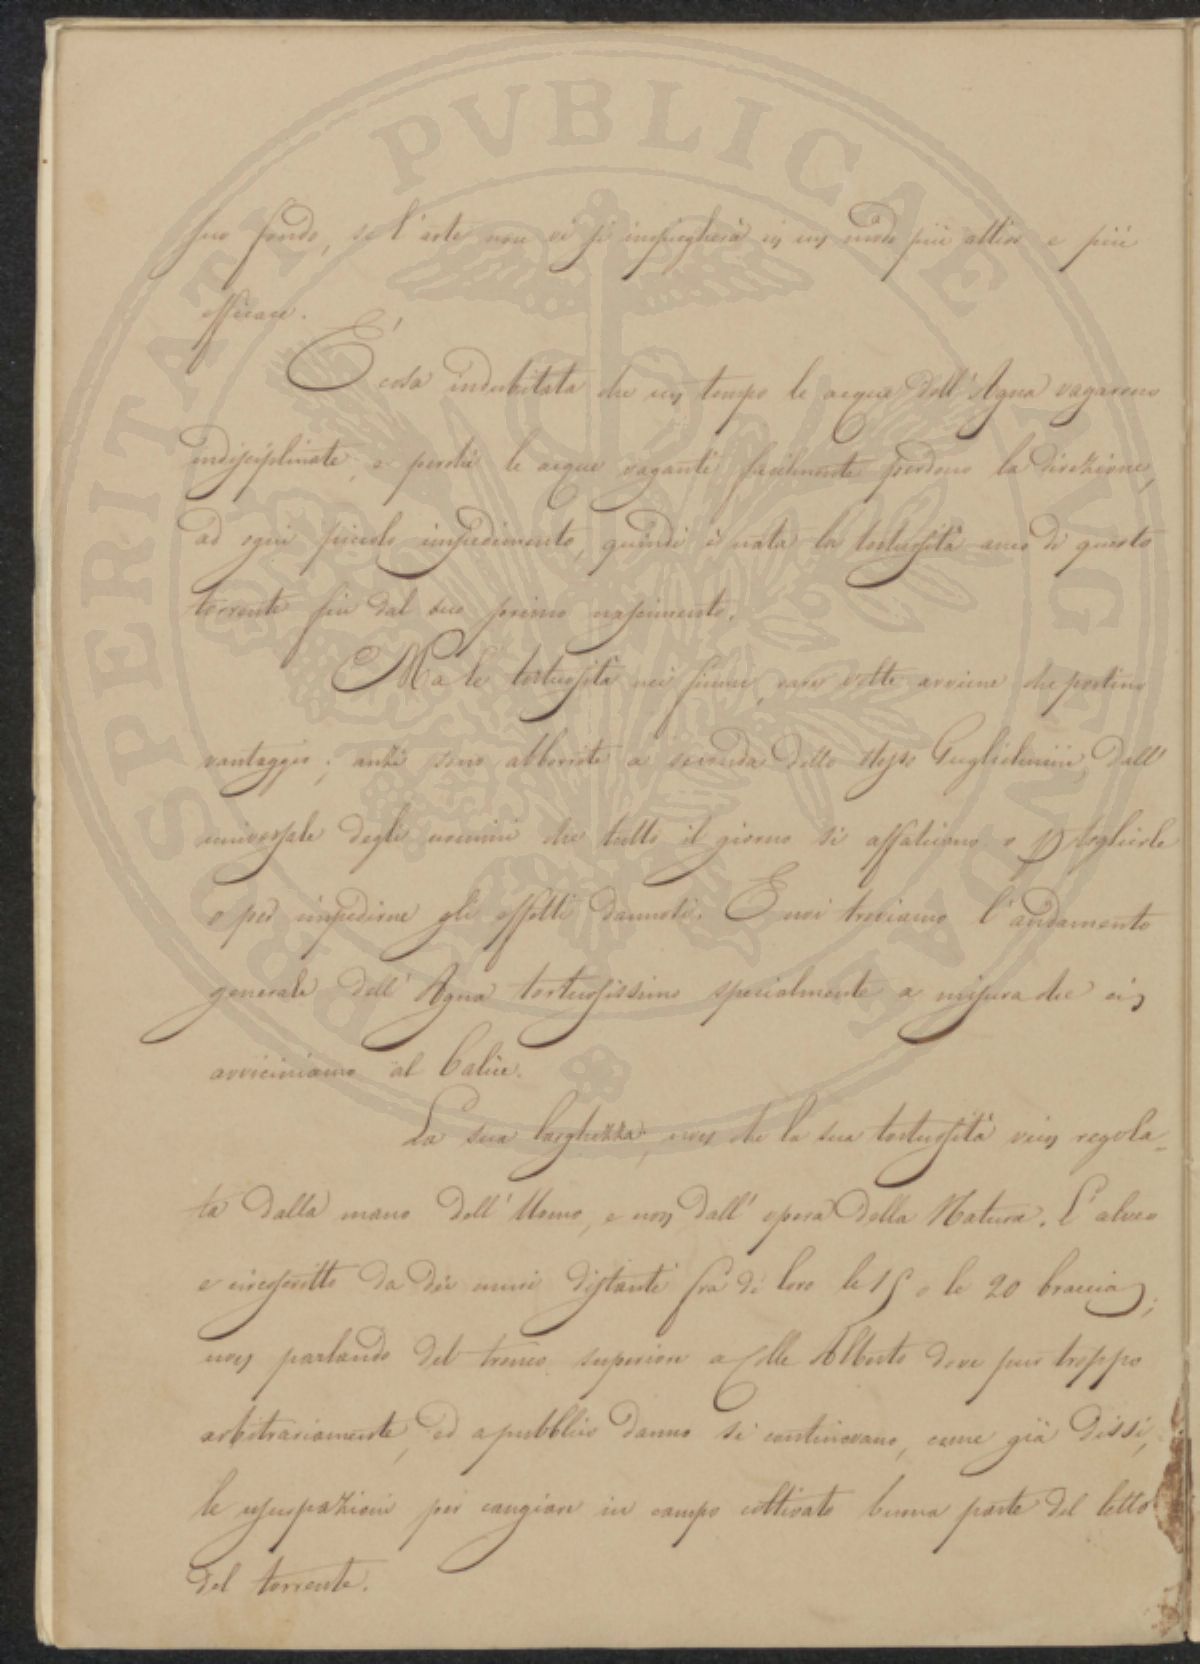 suo fondo, se l'arte non vi si impiegherà in un modo più attivo e più
efficace.
È cosa indubitata che un tempo le acque dell'Agna vagarono
indisciplinate, e perchè le acque vaganti facilmente perdono la direzione,
ad ogni piccolo impedimento, quindi è nata la tortuosità anco di questo
torrente fin dal suo primo nascimento.
Ma le tortuosità nei fiumi, rare volte avviene che portino
vantaggio; anzi sono abborrite a seconda dello stesso Guglielmini, dall'
universale degli uomini che tutto il giorno si affaticano o p toglierle
o per impedirne gli effetti dannosi. E noi troviamo l'andamento
generale dell'Agna tortuosissimo specialmente a misura che ci
avviciniamo al Calice.
La sua larghezza, non che la sua tortuosità vien regola-
ta dalla mano dell'Uomo, e non dall'opera della Natura. L'alveo
è circoscritto da due muri distanti frà di loro le 15 o le 20 braccia;
non parlando del tronco superiore a Colle Alberto dove pur troppo
arbitrariamente, ed a pubblico danno si continovano, come già dissi,
le usurpazioni per cangiare in campo coltivato buona parte del letto
del torrente.
PROSPERITATI PVBLICAE AVGENDAE